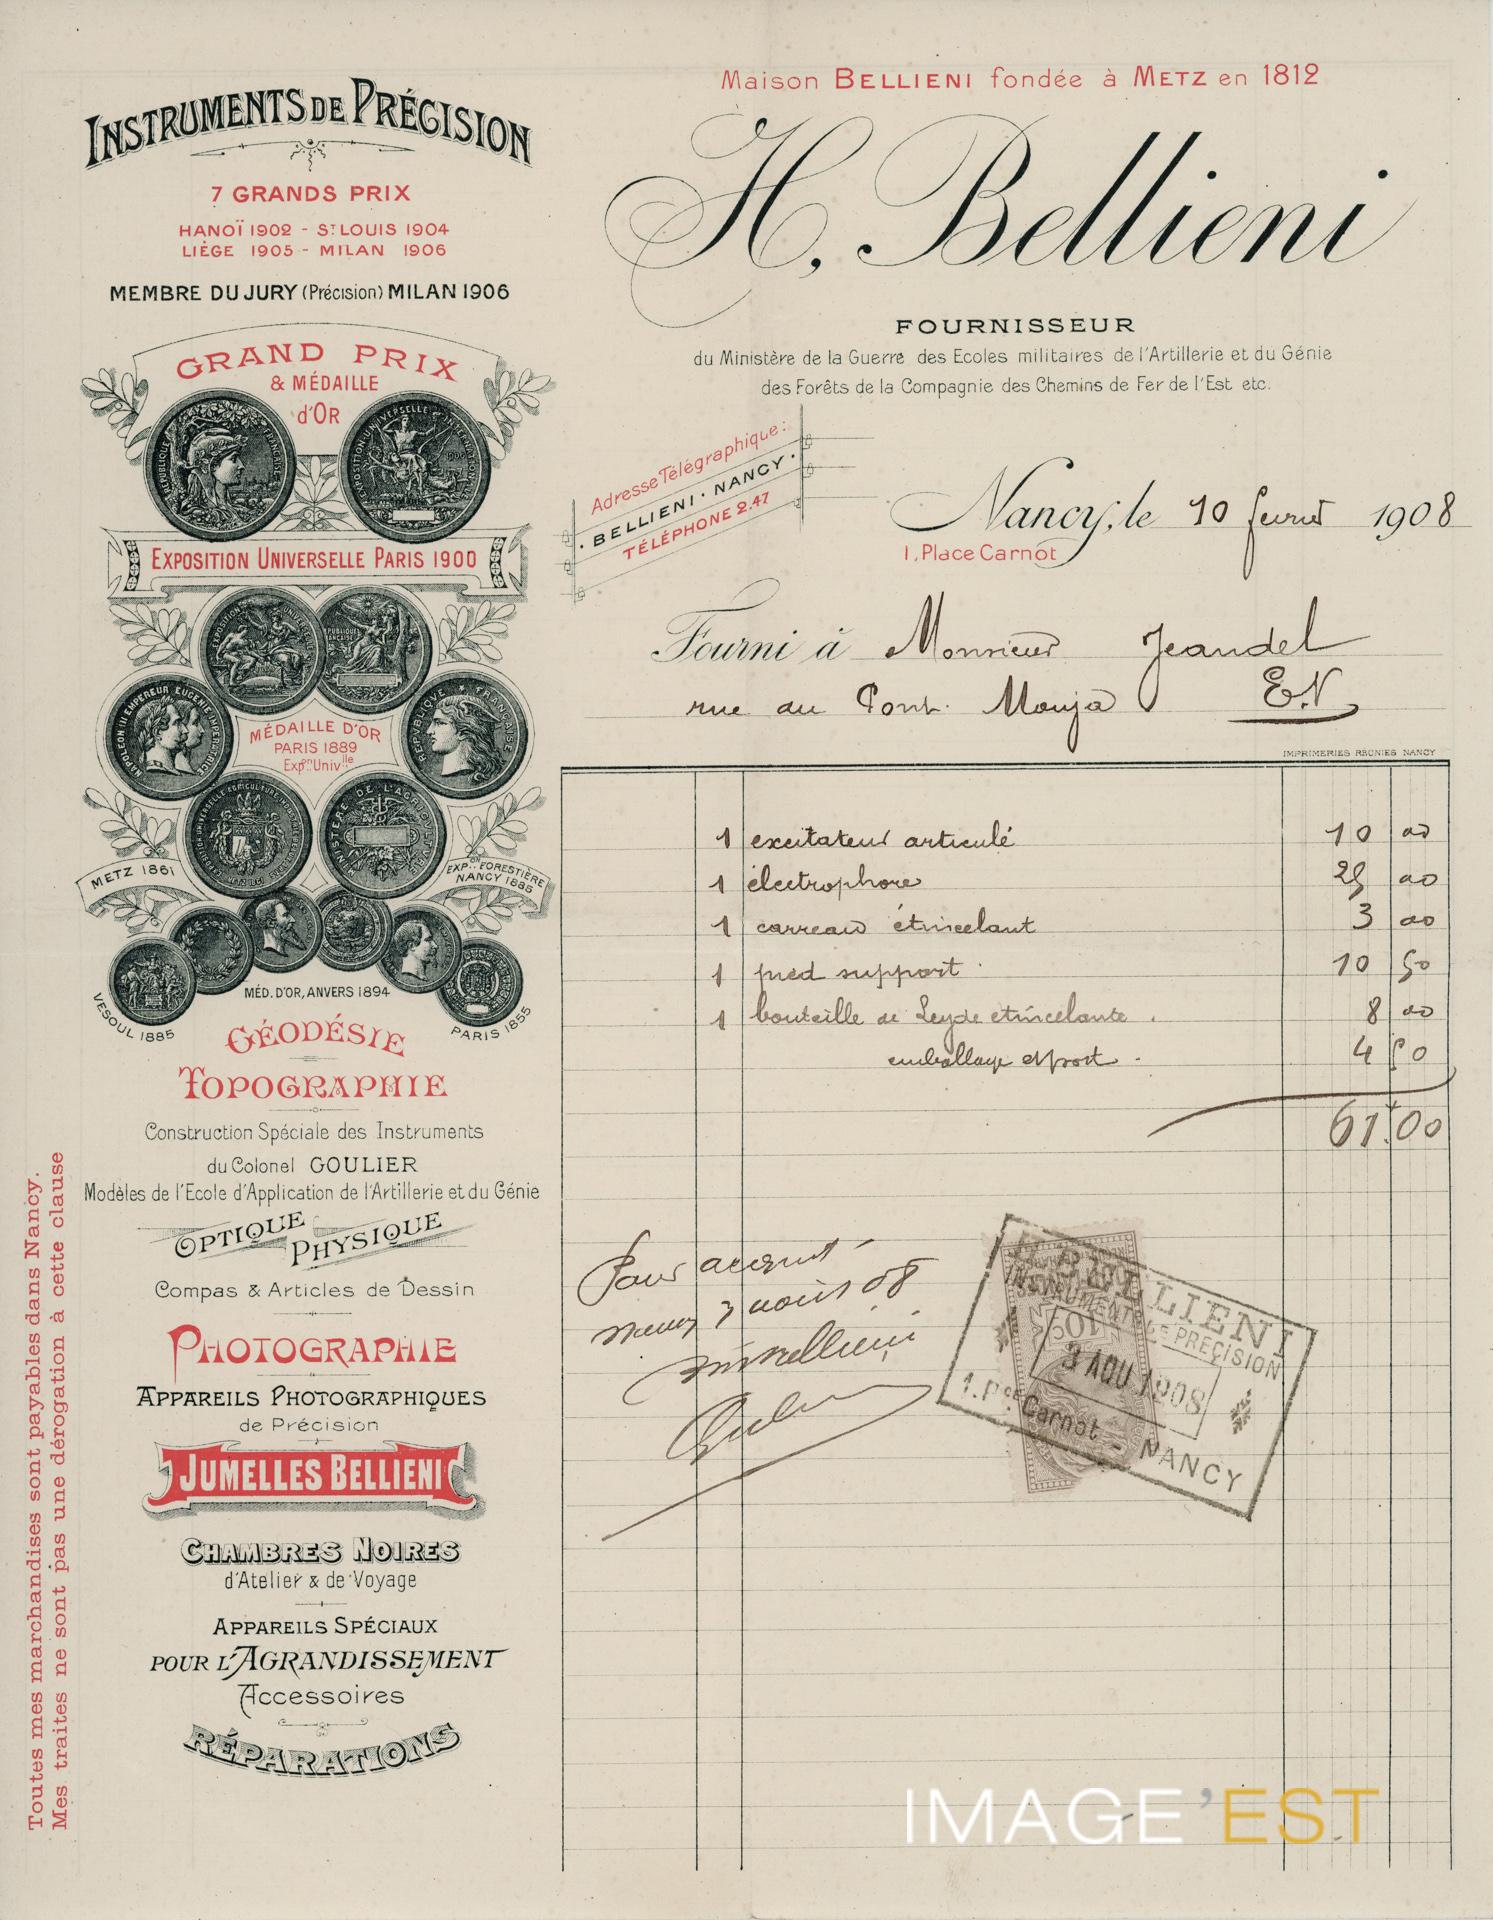 Maison BELLIENI fondée à METZ en 1812
INSTRUMENTS DE PRÉCISION
7 GRANDS PRIX
HANOÏ 1902 - ST LOUIS 1904
LIÈGE 1905 - MILAN 1906
MEMBRE DU JURY (Précision) MILAN 1906
GRAND PRIX
& MÉDAILLE
d'OR
REPUBLIQUE FRANÇAISE
EXPOSITION UNIVERSELLE INTERNATIONALE
EXPOSITION UNIVERSELLE PARIS 1900
NAPOLEON III EMPEREUR EUGÉNIE IMPERATRICE
MÉDAILLE D'OR
PARIS 1889
Expon Univlle
REPUBLIQUE FRANÇAISE
MINISTERE DE L'AGRICULTURE
METZ 1861
EXPon FORESTIÈRE
NANCY 1885
MÉD. D'OR, ANVERS 1894
VESOUL 1885
PARIS 1855
GÉODÉSIE
TOPOGRAPHIE
Construction Spéciale des Instruments
du Colonel GOULIER
Modèles de l'Ecole d'Application de l'Artillerie et du Génie
OPTIQUE PHYSIQUE
Compas & Articles de Dessin
PHOTOGRAPHIE
APPAREILS PHOTOGRAPHIQUES
de Précision
JUMELLES BELLIENI
CHAMBRES NOIRES
d'Atelier & de Voyage
APPAREILS SPÉCIAUX
POUR L'AGRANDISSEMENT
Accessoires
RÉPARATIONS
Toutes mes marchandises sont payables dans Nancy.
Mes traites ne sont pas une dérogation à cette clause
H. Bellieni
FOURNISSEUR
du Ministère de la Guerre des Ecoles militaires de l'Artillerie et du Génie
des Forêts de la Compagnie des Chemins de Fer de l'Est etc.
Adresse Télégraphique:
BELLIENI · NANCY ·
TÉLÉPHONE 2.47
Nancy, le 10 fevrier 1908
1, Place Carnot
Fourni à Monsieur Jeandel
rue du Pont Mouja E.V
IMPRIMERIES RÉUNIES NANCY
1 excitateur articulé 10 00
1 électrophore 25 00
1 carreau étincelant 3 00
1 pied support 10 50
1 bouteille de Leyde etincelante 8 00
emballage et port 4 50
61.00
Pour acquit
Nancy 3 août 08
H. BELLIENI
INSTRUMENTS DE PRÉCISION
10c
3 AOU 1908
1. Pce Carnot - NANCY
IMAGE'EST